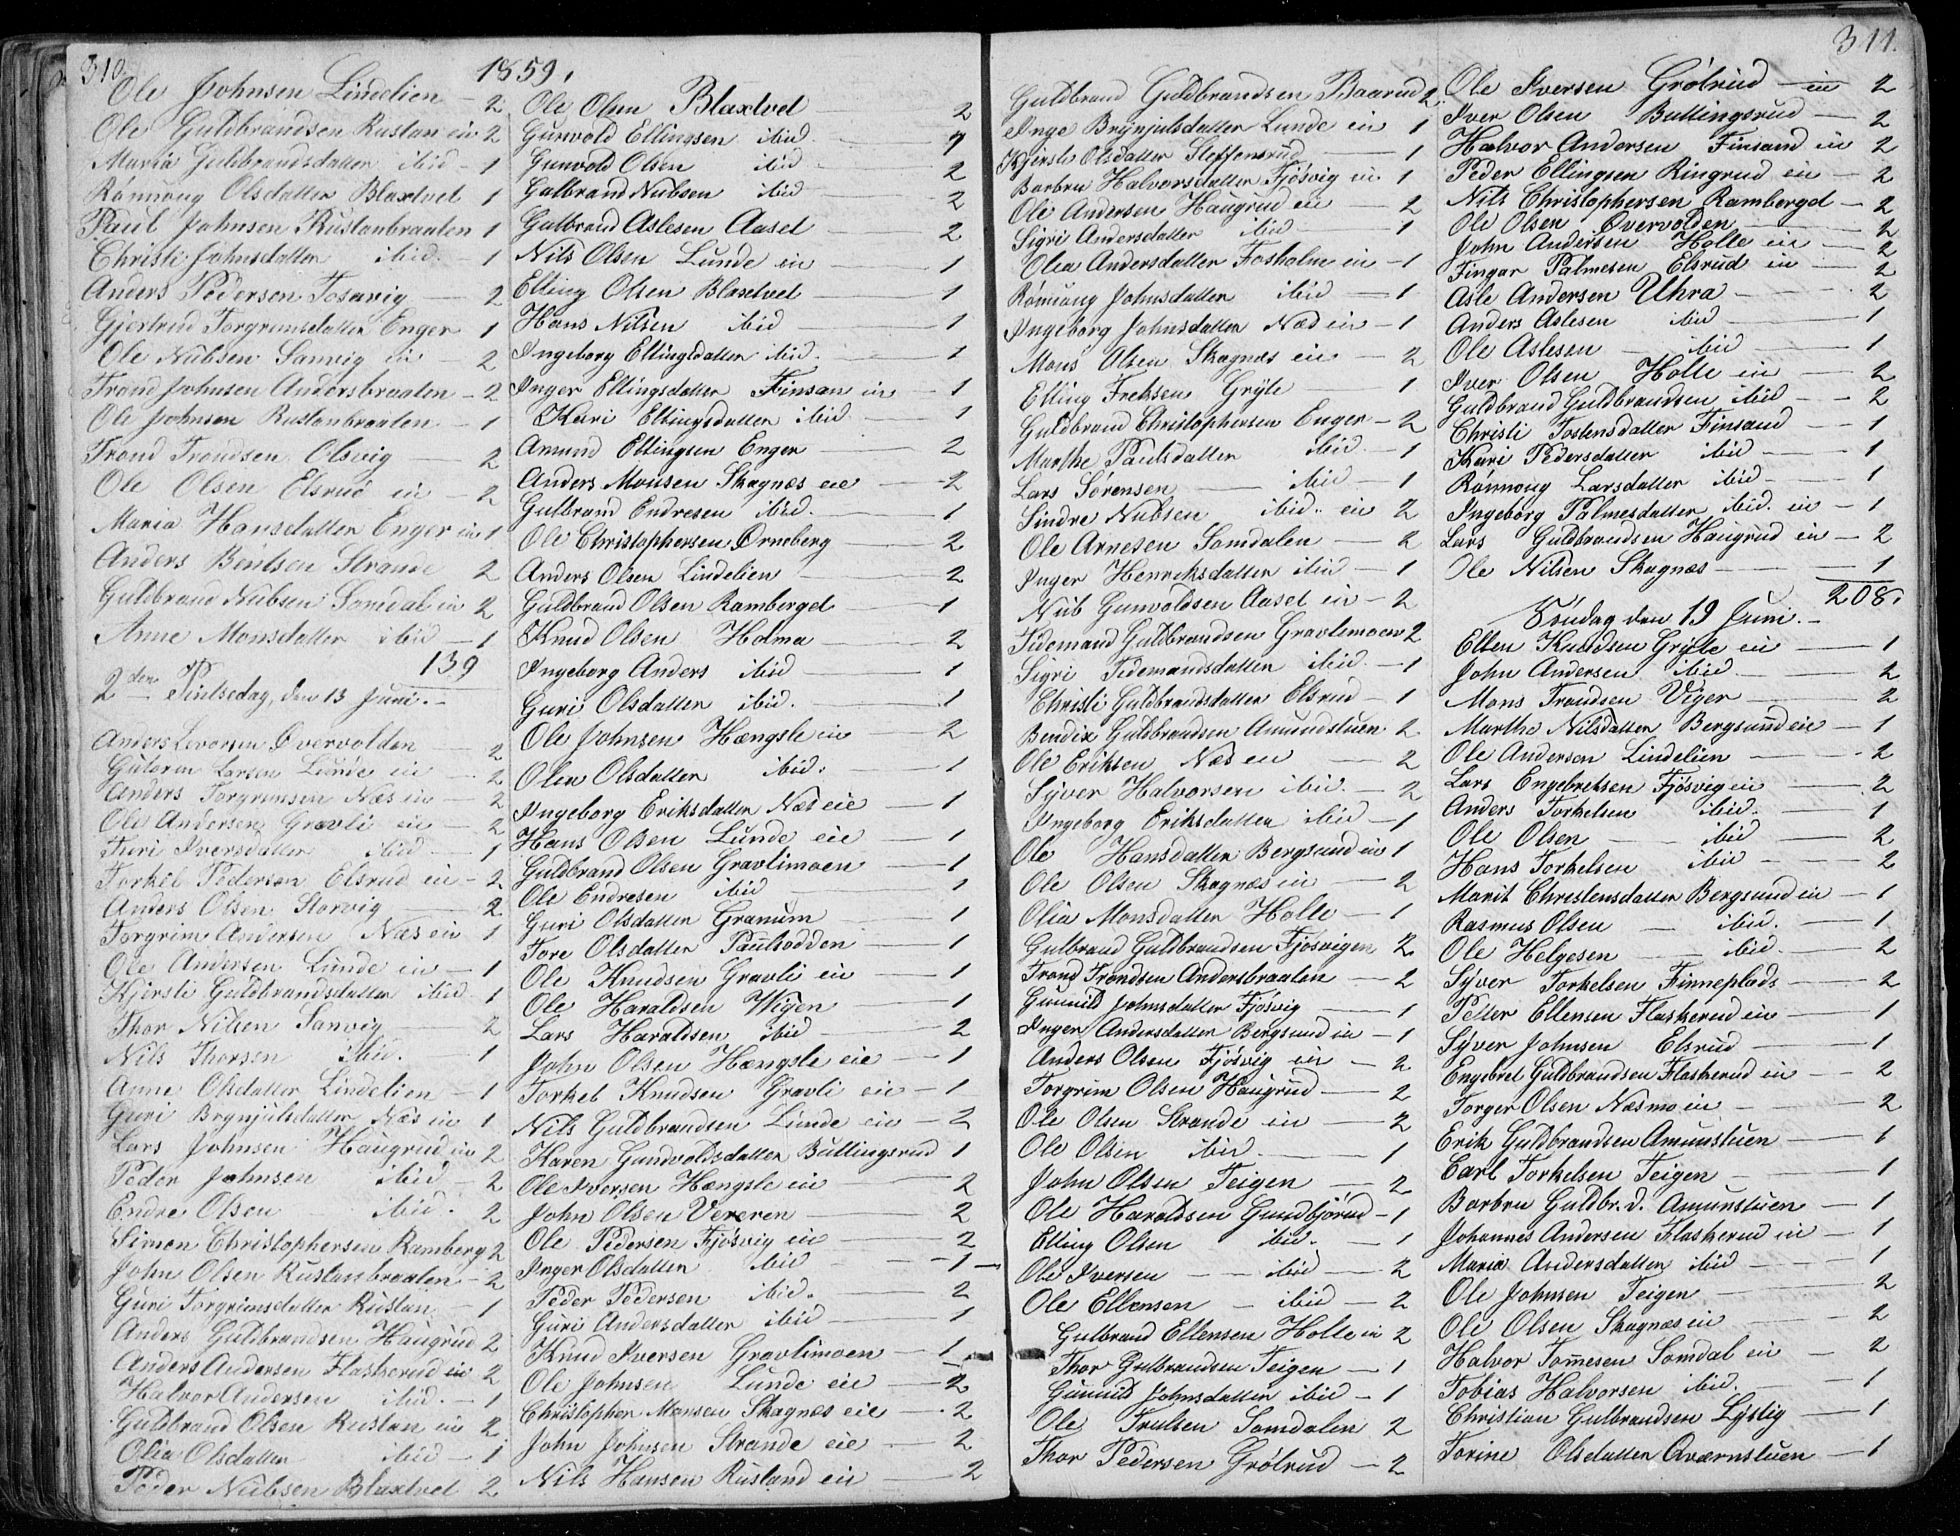 310.
1859.
Ole Johnsen Lindelien — 2
Ole Guldbrandsen Rustan eie 2
Maria Guldbrandsdatter ibid — 1
Rønnoug Olsdatter Blaxtvet 1
Paul Johnsen Rustanbraaten 1
Christi Johnsdatter ibid. — 1
Anders Pedersen Fosavig — 2
Gjertrud Torgrimsdatter Enger 1
Ole Nubsen Sanvig eie — 2
Trond Johnsen Andersbraaten — 2
Ole Johnsen Rustanbraaten — 1
Trond Trondsen Olsvig — 2
Ole Olsen Elsrud eie — 2
Maria Hansdatter Enger eie 1
Anders Bentsen Strande 2
Guldbrand Nubsen Somdal eie 2
Anne Monsdatter ibid — 1
139
2den Pintsedag, den 13 Juni. —
Anders Levorsen Øvervolden — 2
Guttorm Larsen Lunde eie — 2
Anders Torgrimsen Næs eie — 2
Ole Andersen Gravli eie — 2
Turi Iversdatter ibid — 1
Torkel Pedersen Elsrud eie — 2
Anders Olsen Storvig — 2
Torgrim Andersen Næs eie 1
Ole Andersen Lunde eie — 1
Kjersti Guldbrandsdatter ibid 1
Thor Nilsen Sanvig — 2
Nils Thorsen ibid. — 1
Anne Olsdatter Lindelien — 1
Guri Brynjulsdatter Næs eie 1
Lars Johnsen Haugrud eie 2
Peder Johnsen ibid — 2
Endre Olsen ibid. 2
Simen Christophersen Ramberg 2
John Olsen Rustanbraaten — 2
Guri Torgrimsdatter Rustan — 1
Anders Guldbrandsen Haugrud 2
Anders Andersen Flaskerud eie 2
Halvor Andersen ibid. — 1
Guldbrand Olsen Rustan eie 2
Olia Olsdatter ibid — 1
Peder Nubsen Blaxtvet 2
Ole Olsen Blaxtvet 2
Gunvold Ellingsen ibid. — 1
Gunvold Olsen ibid — 2
Gulbrand Nubsen ibid — 2
Gulbrand Aslesen Aaset — 2
Nils Olsen Lunde eie — 1
Elling Olsen Blaxtvet — 1
Hans Nilsen ibid — 1
Ingeborg Ellingsdatter ibid. — 1
Inger Ellingsdatter Finsan eie — 1
Kari Ellingsdatter ibid — 1
Amund Ellingsen Enger — 2
Anders Monsen Skagnæs eie — 2
Gulbrand Endresen ibid. — 1
Ole Christophersen Ørneberg — 2
Anders Olsen Lindelien — 2
Guldbrand Olsen Ramberget — 1
Knud Olsen Holma — 2
Ingeborg Anders ibid — 1
Guri Olsdatter ibid. — 1
Ole Johnsen Hængsle eie — 2
Olea Olsdatter ibid. — 1
Ingeborg Eriksdatter Næs eie — 1
Hans Olsen Lunde eie — 1
Guldbrand Olsen Gravlimoen — 1
Ole Endresen ibid — 1
Guri Olsdatter Granum — 1
Tore Olsdatter Paulsodden — 1
Ole Knudsen Gravli eie — 1
Ole Haraldsen Wigen — 1
Lars Haraldsen ibid — 2
John Olsen Hængsle eie — 1
Torkel Knudsen Gravli eie — 1
Nils Guldbrandsen Lunde eie — 2
Karen Gundvoldsdatter Bullingsrud 1
Ole Iversen Hængsle eie — 2
John Olsen Veneren — 2
Ole Pedersen Fjøsvig eie — 2
Inger Olsdatter ibid — 1
Peder Pedersen ibid. — 2
Guri Andersdatter ibid — 1
Knud Iversen Gravlimoen — 1
Ole Johnsen Lunde eie — 2
Christopher Monsen Skagnæs eie — 2
John Johnsen Strande eie — 2
Nils Hansen Rusland eie — 2
311.
Guldbrand Guldbrandsen Baarud 2
Inge Brynjulsdatter Lunde eie 1
Kjersti Olsdatter Steffensrud — 1
Barbru Halvorsdatter Fjøsvig eie 1
Ole Andersen Haugrud eie — 2
Sigri Andersdatter ibid — 1
Olea Andersdatter Fosholm eie — 1
Rønnoug Johnsdatter ibid — 1
Ingeborg Johnsdatter Næs eie — 1
Mons Olsen Skagnæs eie 2
Elling Frehsen Gryte — 1
Guldbrand Christophersen Enger — 2
Marthe Paulsdatter ibid. — 1
Lars Sørensen — ibid — 1
Sindre Nubsen ibid. eie 2
Ole Arnesen Somdalen — 2
Inger Henriksdatter ibid — 1
Nub Gunvoldsen Aaset eie — 2
Tidemand Guldbrandsen Gravlimoen 2
Sigri Tidemandsdatter ibid. — 1
Christi Guldbrandsdatter Elsrud — 1
Bendix Guldbrandsen Amundstuen 2
Ole Eriksen Næs eie — 2
Syver Halvorsen ibid. — 2
Ingeborg Eriksdatter ibid — 1
Ole Hansdatter Bergsund eie 1
Ole Olsen Skagnæs eie — 2
Olia Monsdatter Holte — 1
Gulbrand Guldbrandsen Fjøsvigen 2
Trond Trondsen Andersbraaten — 2
Gunnild Johnsdatter Fjøsvig — 1
Inger Andersdatter Bergsund eie — 1
Anders Olsen Fjøsvig eie — 2
Torgrim Olsen Haugrud — 2
Ole Olsen Strande eie — 2
Ole Olsen ibid. — 1
John Olsen Teigen — 2
Ole Haraldsen Gundbjørud — 1
Elling Olsen ibid. — 1
Ole Iversen — ibid — 2
Ole Ellensen — ibid — 2
Gulbrand Ellensen Holte eie 2
Thor Gulbrandsen Teigen — 1
Gunnild Johnsdatter ibid — 1
Ole Trulsen Somdalen 2
Thor Pedersen Grøtrud — 2
Ole Iversen Grøtrud — eie — 2
Iver Olsen Bullingsrud — 2
Halvor Andersen Finsand eie 2
Peder Ellingsen Ringrud eie — 2
Nils Christophersen Rambergel — 2
Ole Olsen Øvervolden — 2
John Andersen Holte eie — 2
Fingar Palmesen Elsrud eie — 2
Asle Andersen Uhra — 2
Anders Aslesen ibid — 1
Ole Aslesen — ibid — 1
Iver Olsen Holte eie — 2
Guldbrand Guldbrandsen ibid — 2
Christi Tostensdatter Finsand — 1
Kari Pedersdatter ibid — 1
Rønnoug Larsdatter ibid — 1
Ingeborg Palmesdatter ibid. eie — 1
Lars Guldbrandsen Haugrud eie — 2
Ole Nilsen Skagnæs — 1
208.
Søndag den 19 Juni. —
Ellen Knudsen Gryte eie — 1
John Andersen ibid. — 2
Mons Trondsen Viger — 2
Marthe Nilsdatter Bergsund eie — 1
Ole Andersen Lindelien — 2
Lars Engebretsen Fjøsvig eie — 2
Anders Torkelsen ibid. — 1
Ole Olsen — ibid — 2
Hans Torkelsen ibid — 2
Marit Christensdatter Bergsund eie — 1
Rasmus Olsen — ibid. — 1
Ole Helgesen — ibid — 2
Syver Torkelsen Finneplads — 2
Petter Ellensen Flaskerud eie — 1
Syver Johnsen Elsrud — 1
Engebret Guldbrandsen Flaskerud eie — 2
Torger Olsen Næsmo eie — 2
Erik Guldbrandsen Amunstuen — 1
Carl Torkelsen Teigen — 1
Barbru Guldbr.d. Amunstuen — 1
Johannes Andersen Flaskerud eie — 1
Maria Andersdatter ibid — 1
Ole Johnsen Teigen — 2
Ole Olsen Skagnæs eie — 2
Halvor Tommesen Somdal eie — 2
Tobias Halvorsen ibid. — 1
Christian Gulbrandsen Lyslig — 1
Torine Olsdatter Qværnstuen — 1